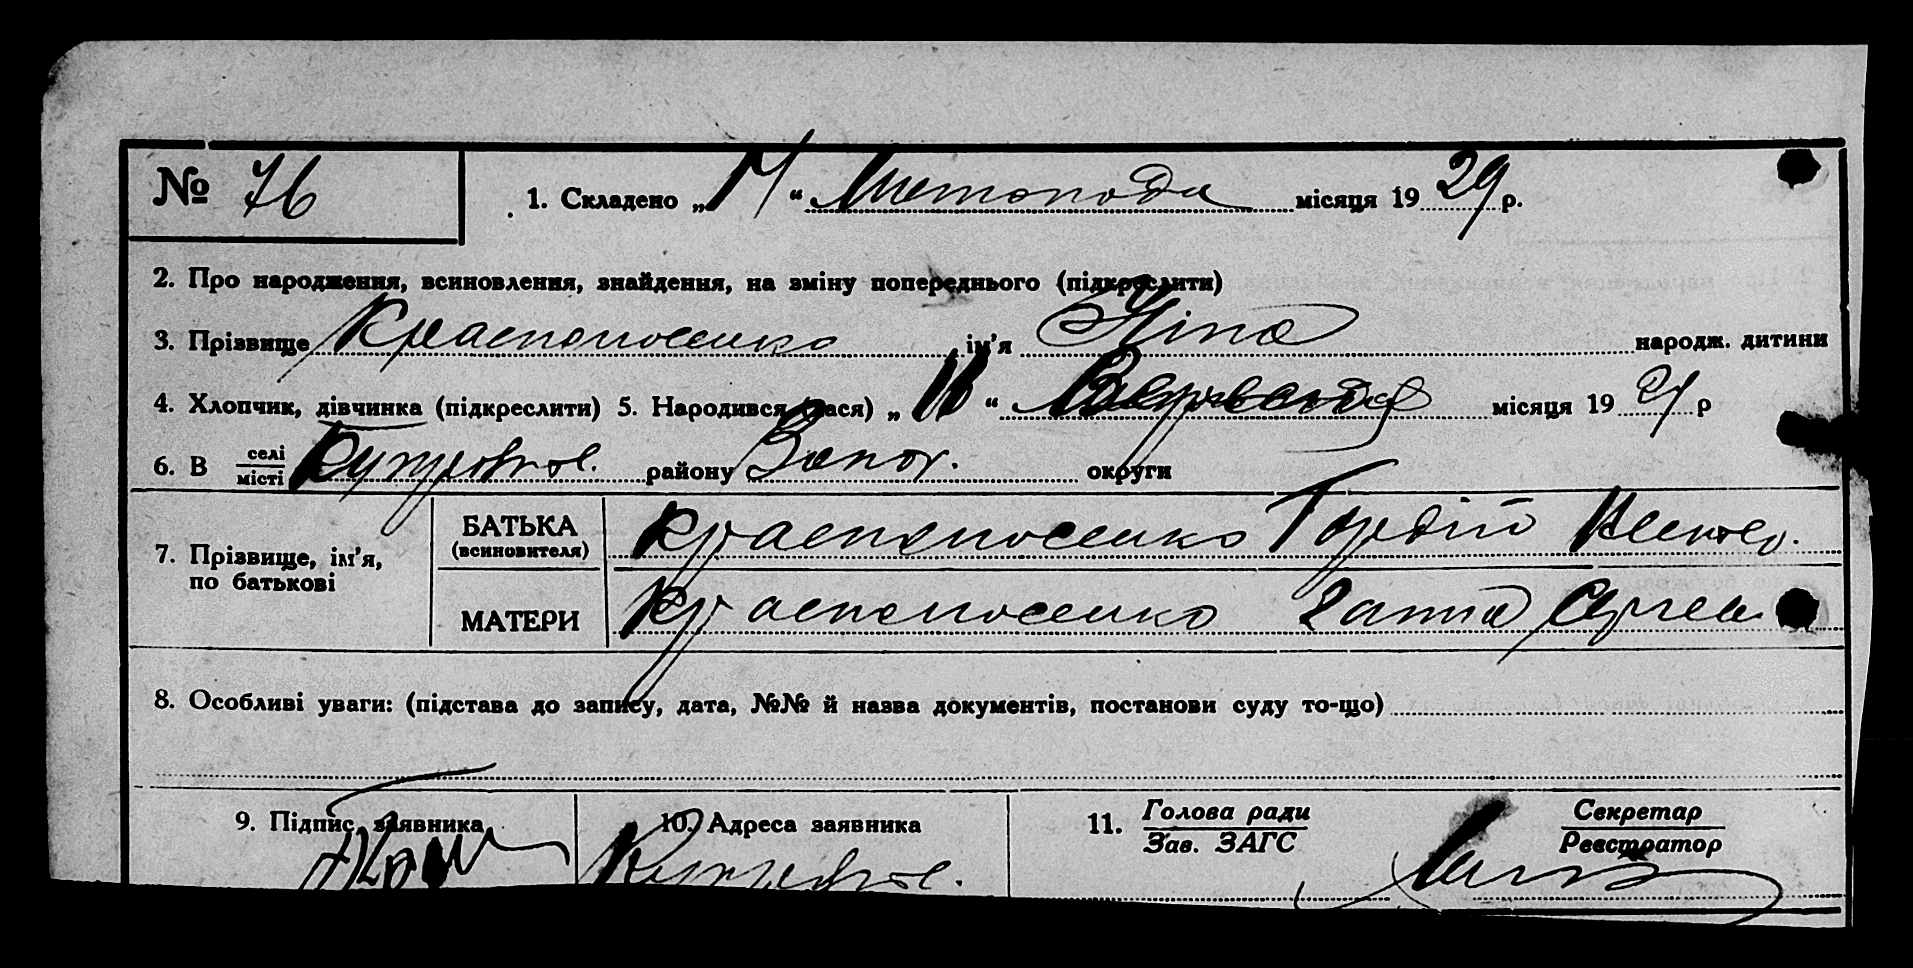 № 76
1. Складено „ “ Листопода місяця 1929 р.
2. Про народження, всиновлення, знайдення, на зміну попереднього (підкреслити)
3. Прізвище Красноносенко ім’я Ніна народж. дитини
4. Хлопчик, дівчинка (підкреслити) 5. Народився (лася) „ “ місяця 19 р
6. В селі
місті району Запор. округи
7. Прізвище, ім’я,
по батькові
БАТЬКА
(всиновителя)
Красноносенко Гордій
МАТЕРИ
Красноносенко Ганна Сергев.
8. Особливі уваги: (підстава до запису, дата, №№ й назва документів, постанови суду то-що)
9. Підпис заявника 10. Адреса заявника 11. Голова ради
Зав. ЗАГС
Секретар
Реєстратор